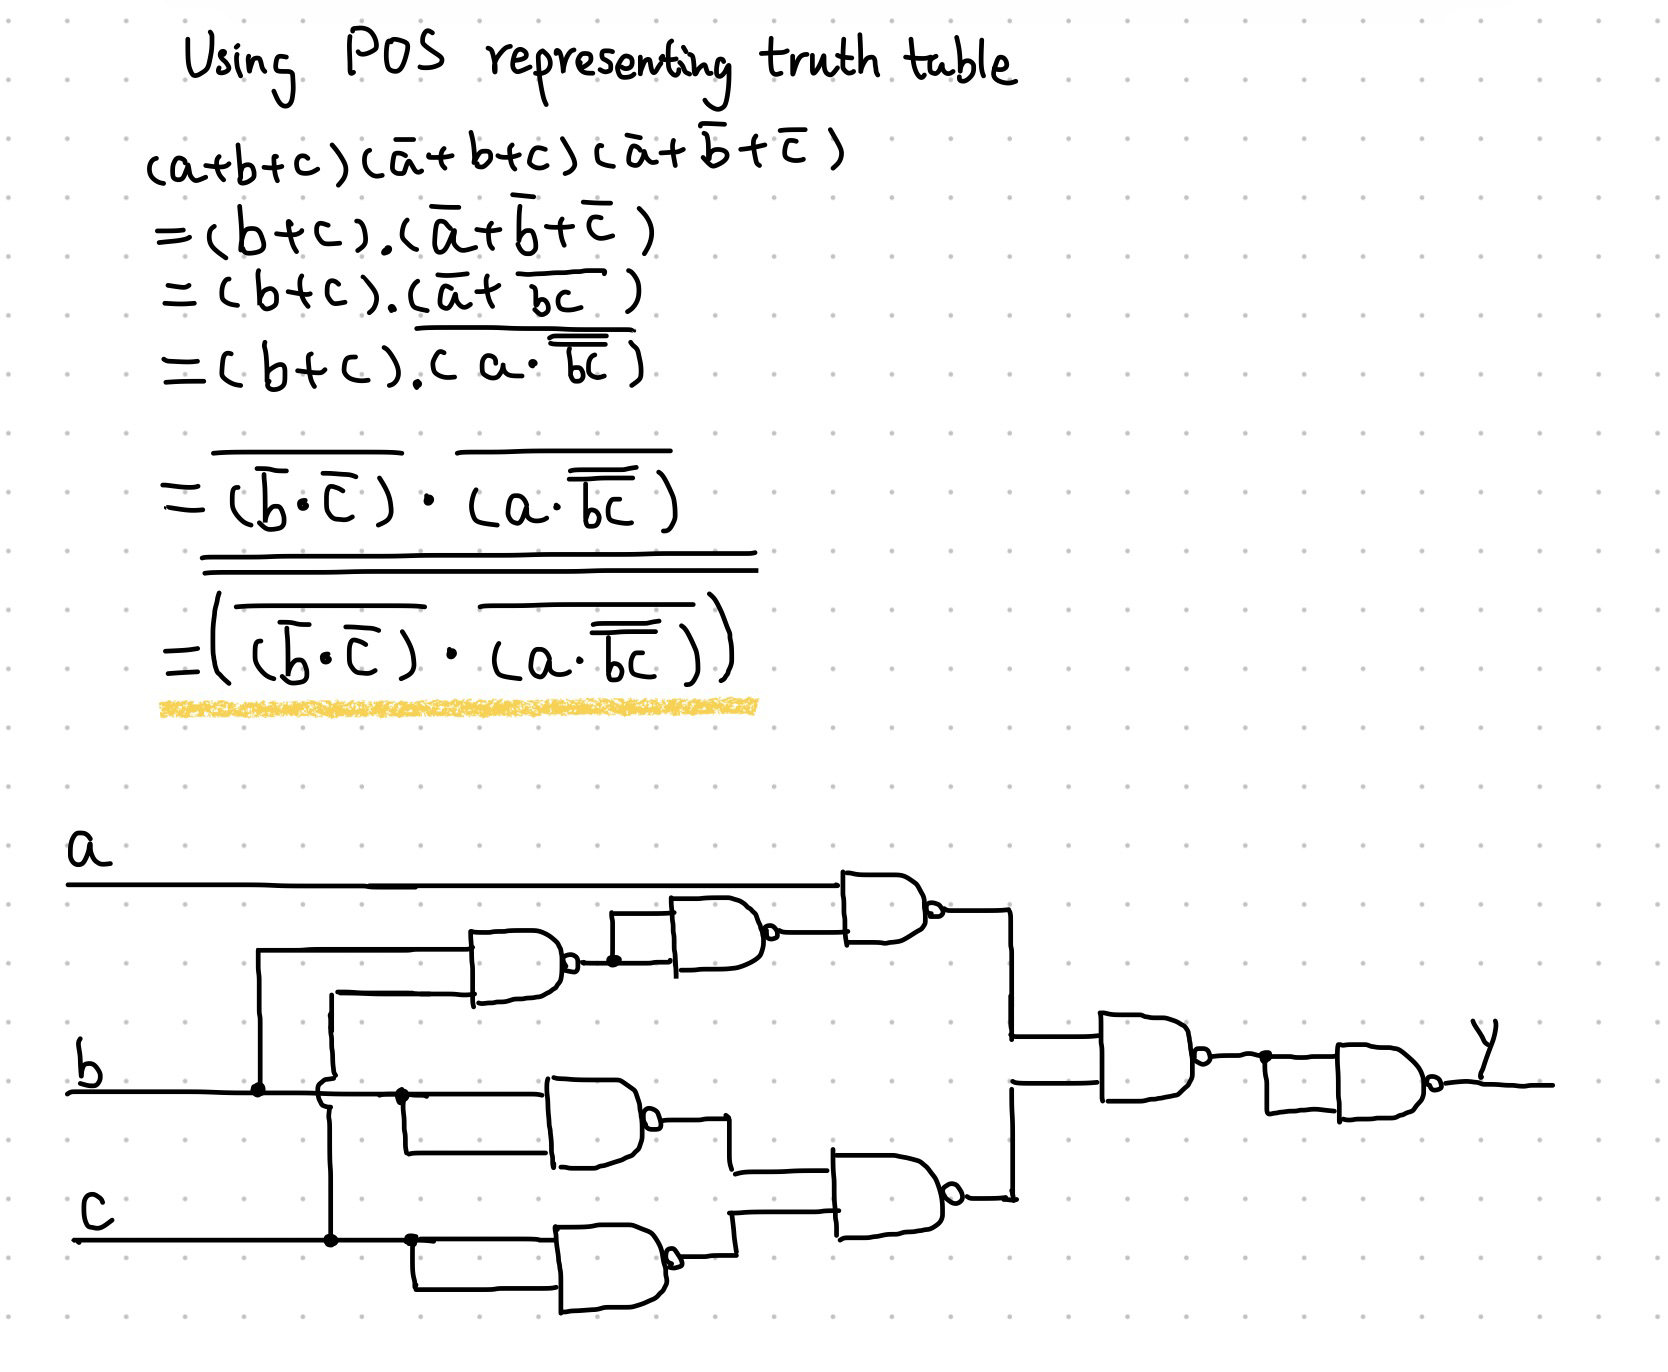 Using POS representing truth table
(a+b+c)(a̅+b+c)(a̅+b̅+c̅)
=(b+c).(a̅+b̅+c̅)
=(b+c).(a̅+b̅c̅)
=(b+c).(̅a̅·̅b̿c̿)̅
=(̅b̅·̅c̅)̅·(̅a̅·̅b̿c̿)̅
=((̅b̅·̅c̅)̅·(̅a̅·̅b̿c̿)̅)
a
b
y
c